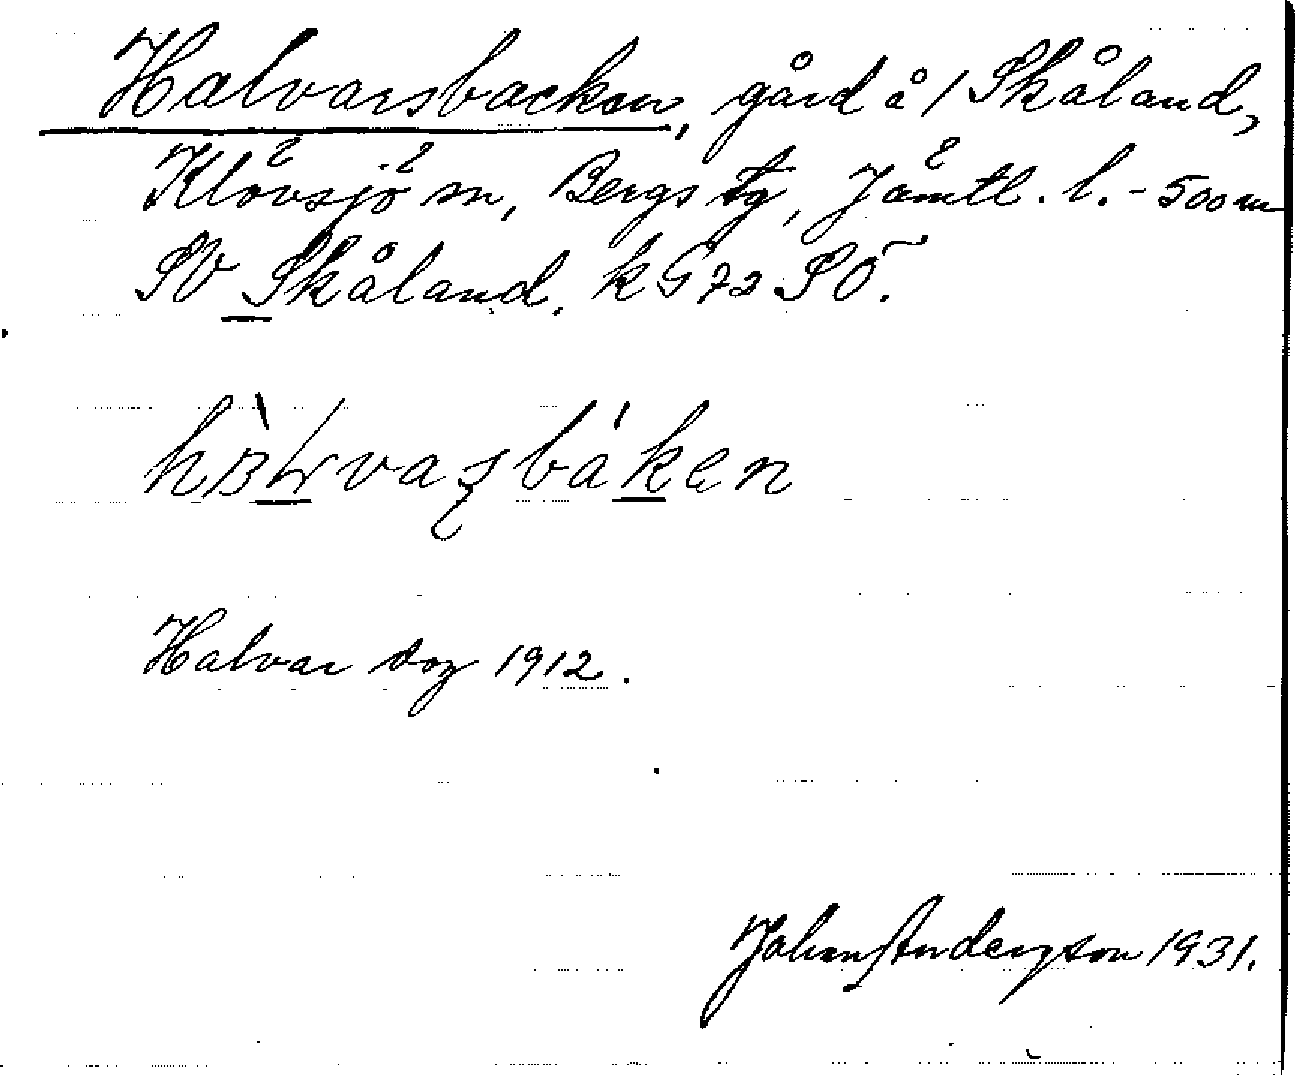 Halvarsbacken, gård å /Skåland,
Klövsjö sn, Bergs tg, Jämtl. l. - 500 m
SV Skåland. k G 72 SÖ.
bàken
Halvar dog 1912.
Johan Anderzson 1931.